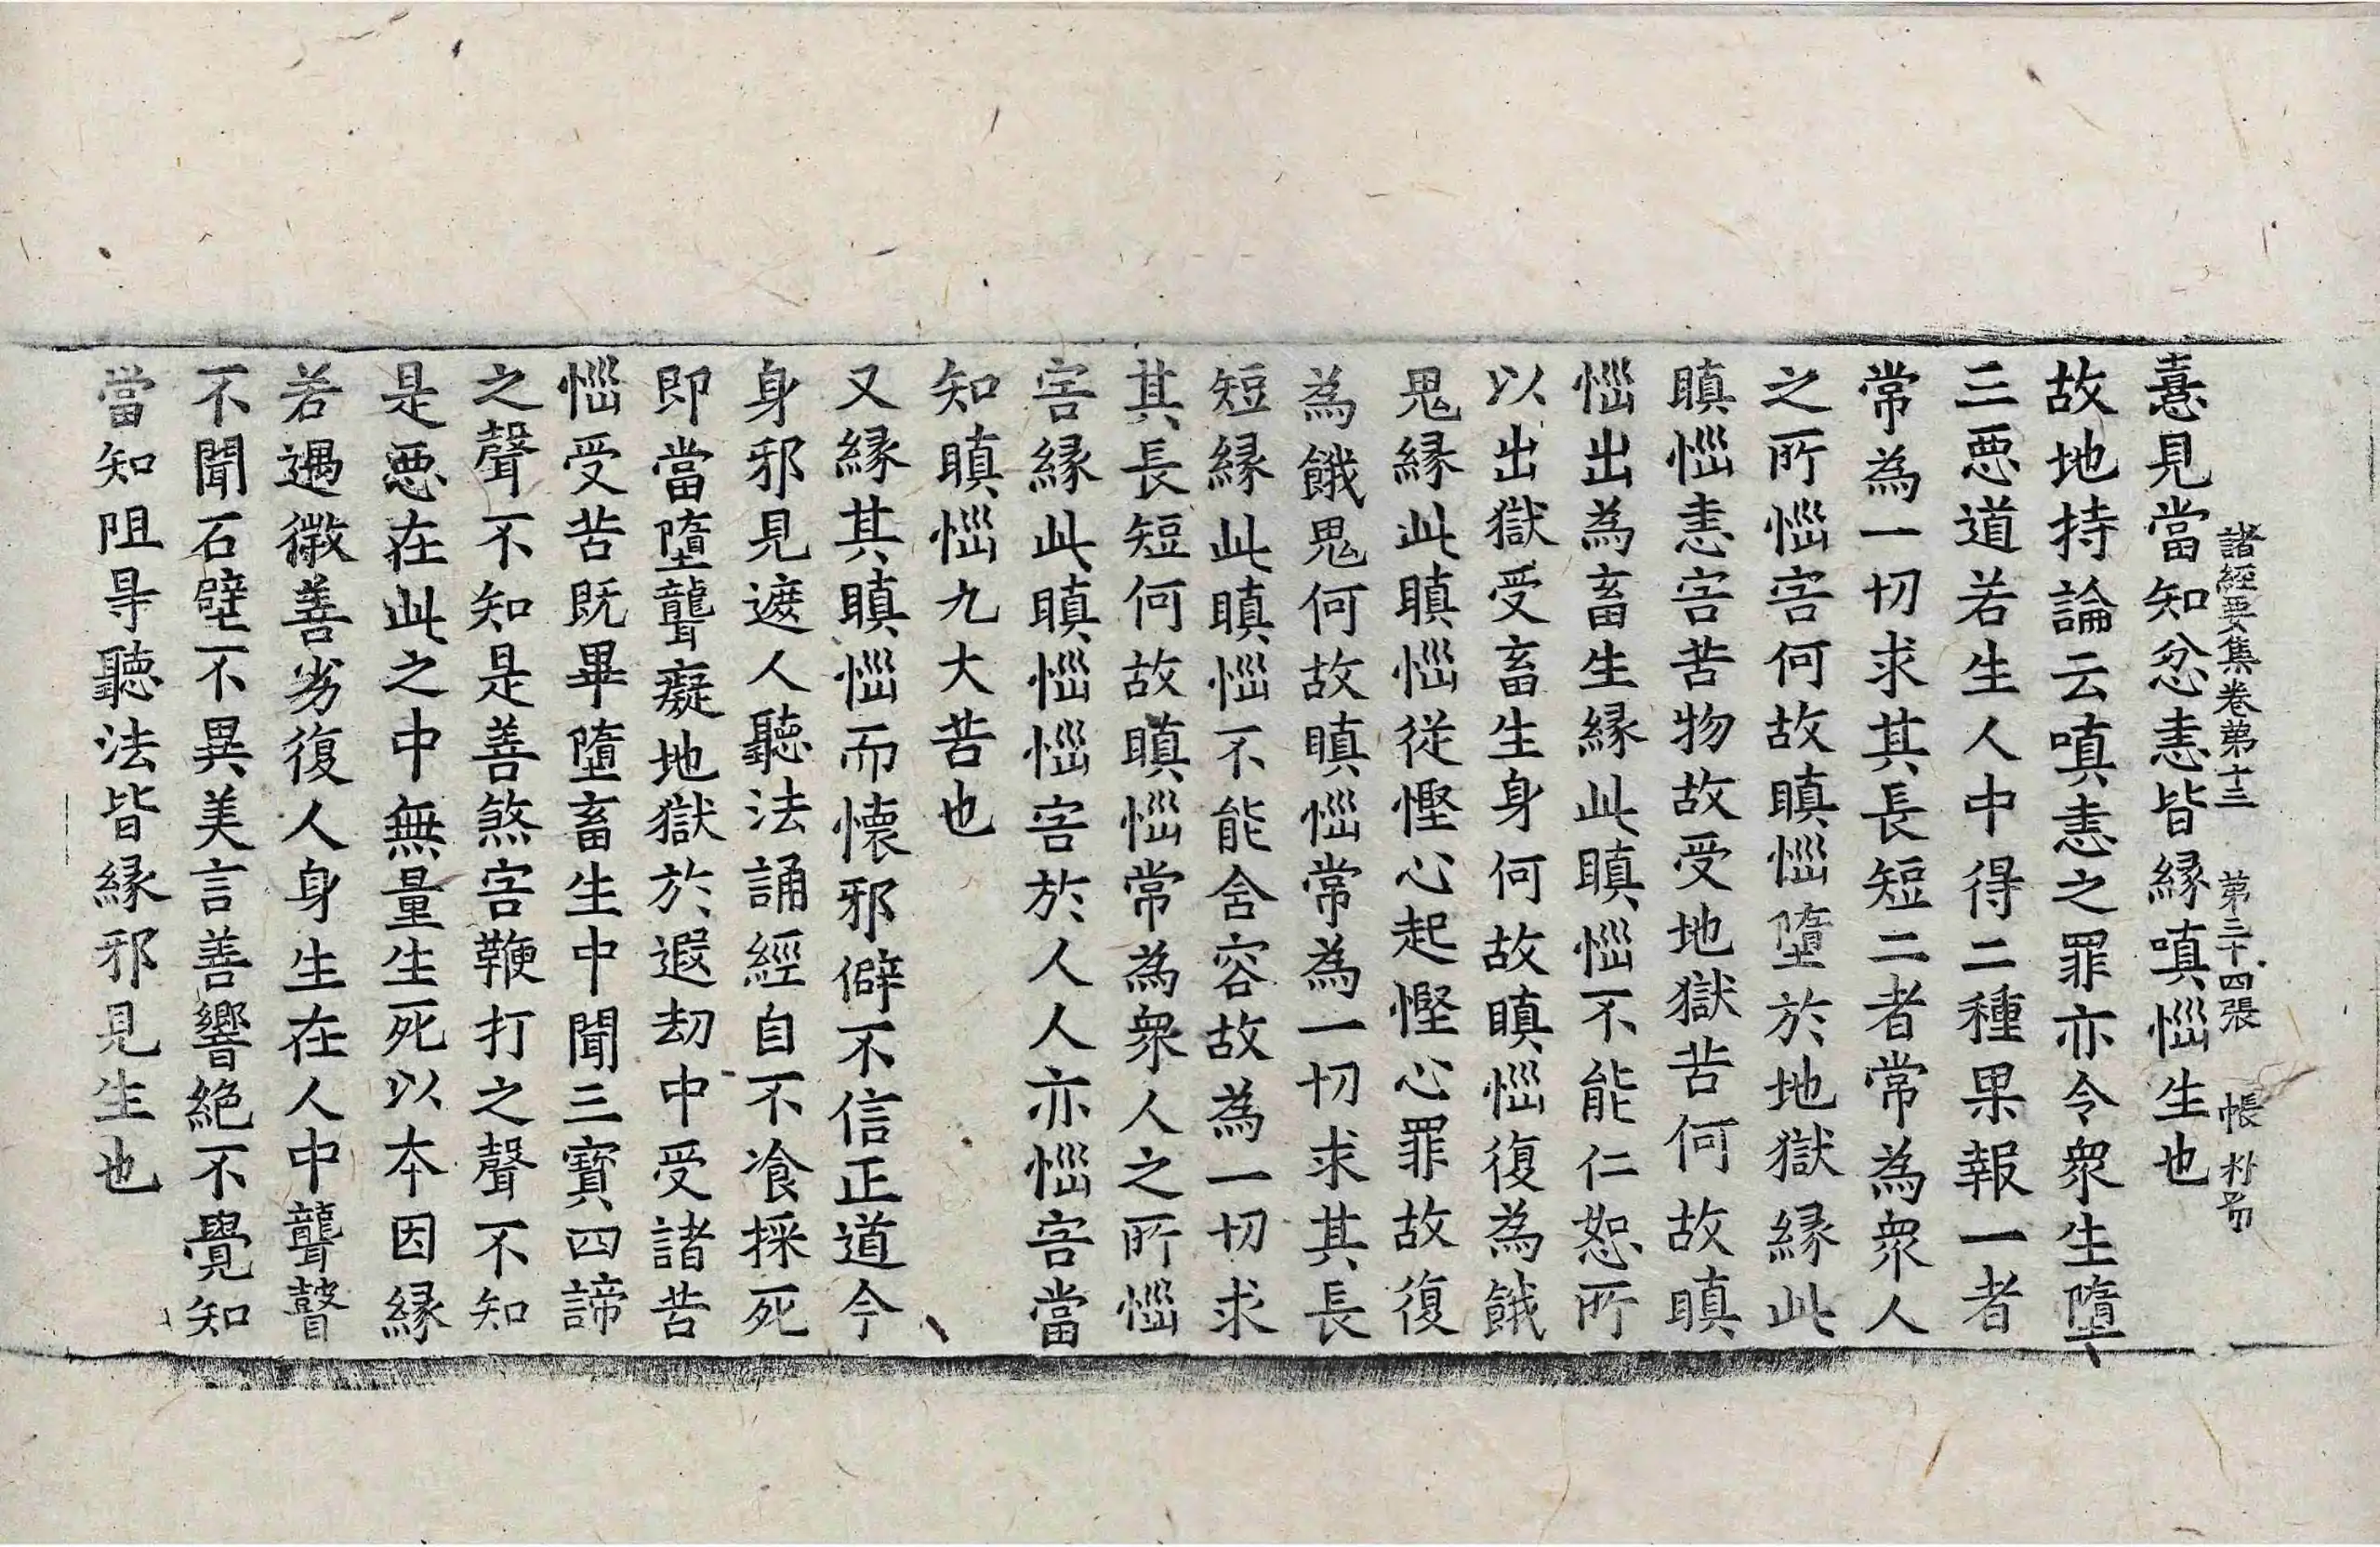 憙見當知忿恚皆縁嗔惱生也
諸經要集卷第十三 第三十四張 帳
故地持論云嗔恚之罪亦令衆生墮
三惡道若生人中得二種果報一者
常為一切求其長短二者常為衆人
之所惱害何故瞋惱墮於地獄緣此
瞋惱恚害苦物故受地獄苦何故瞋
惱出為畜生緣此瞋惱不能仁恕所
以出獄受畜生身何故瞋惱復為餓
鬼緣此瞋惱從慳心起慳心罪故復
為餓鬼何故瞋惱常為一切求其長
短緣此瞋惱不能含容故為一切求
其長短何故瞋惱常為衆人之所惱
害緣此瞋惱惱害於人人亦惱害當
知瞋惱九大苦也
又緣其瞋惱而懷邪僻不信正道今
身邪見遮人聽法誦經自不飡採死
即當墮聾癡地獄於遐劫中受諸苦
惱受苦既畢墮畜生中聞三寶四諦
之聲不知是善煞害鞭打之聲不知
是惡在此之中無量生死以本因緣
若遇微善劣復人身生在人中聾瞽
不聞石壁不異美言善響絕不覺知
當知阻㝵聽法皆緣邪見生也